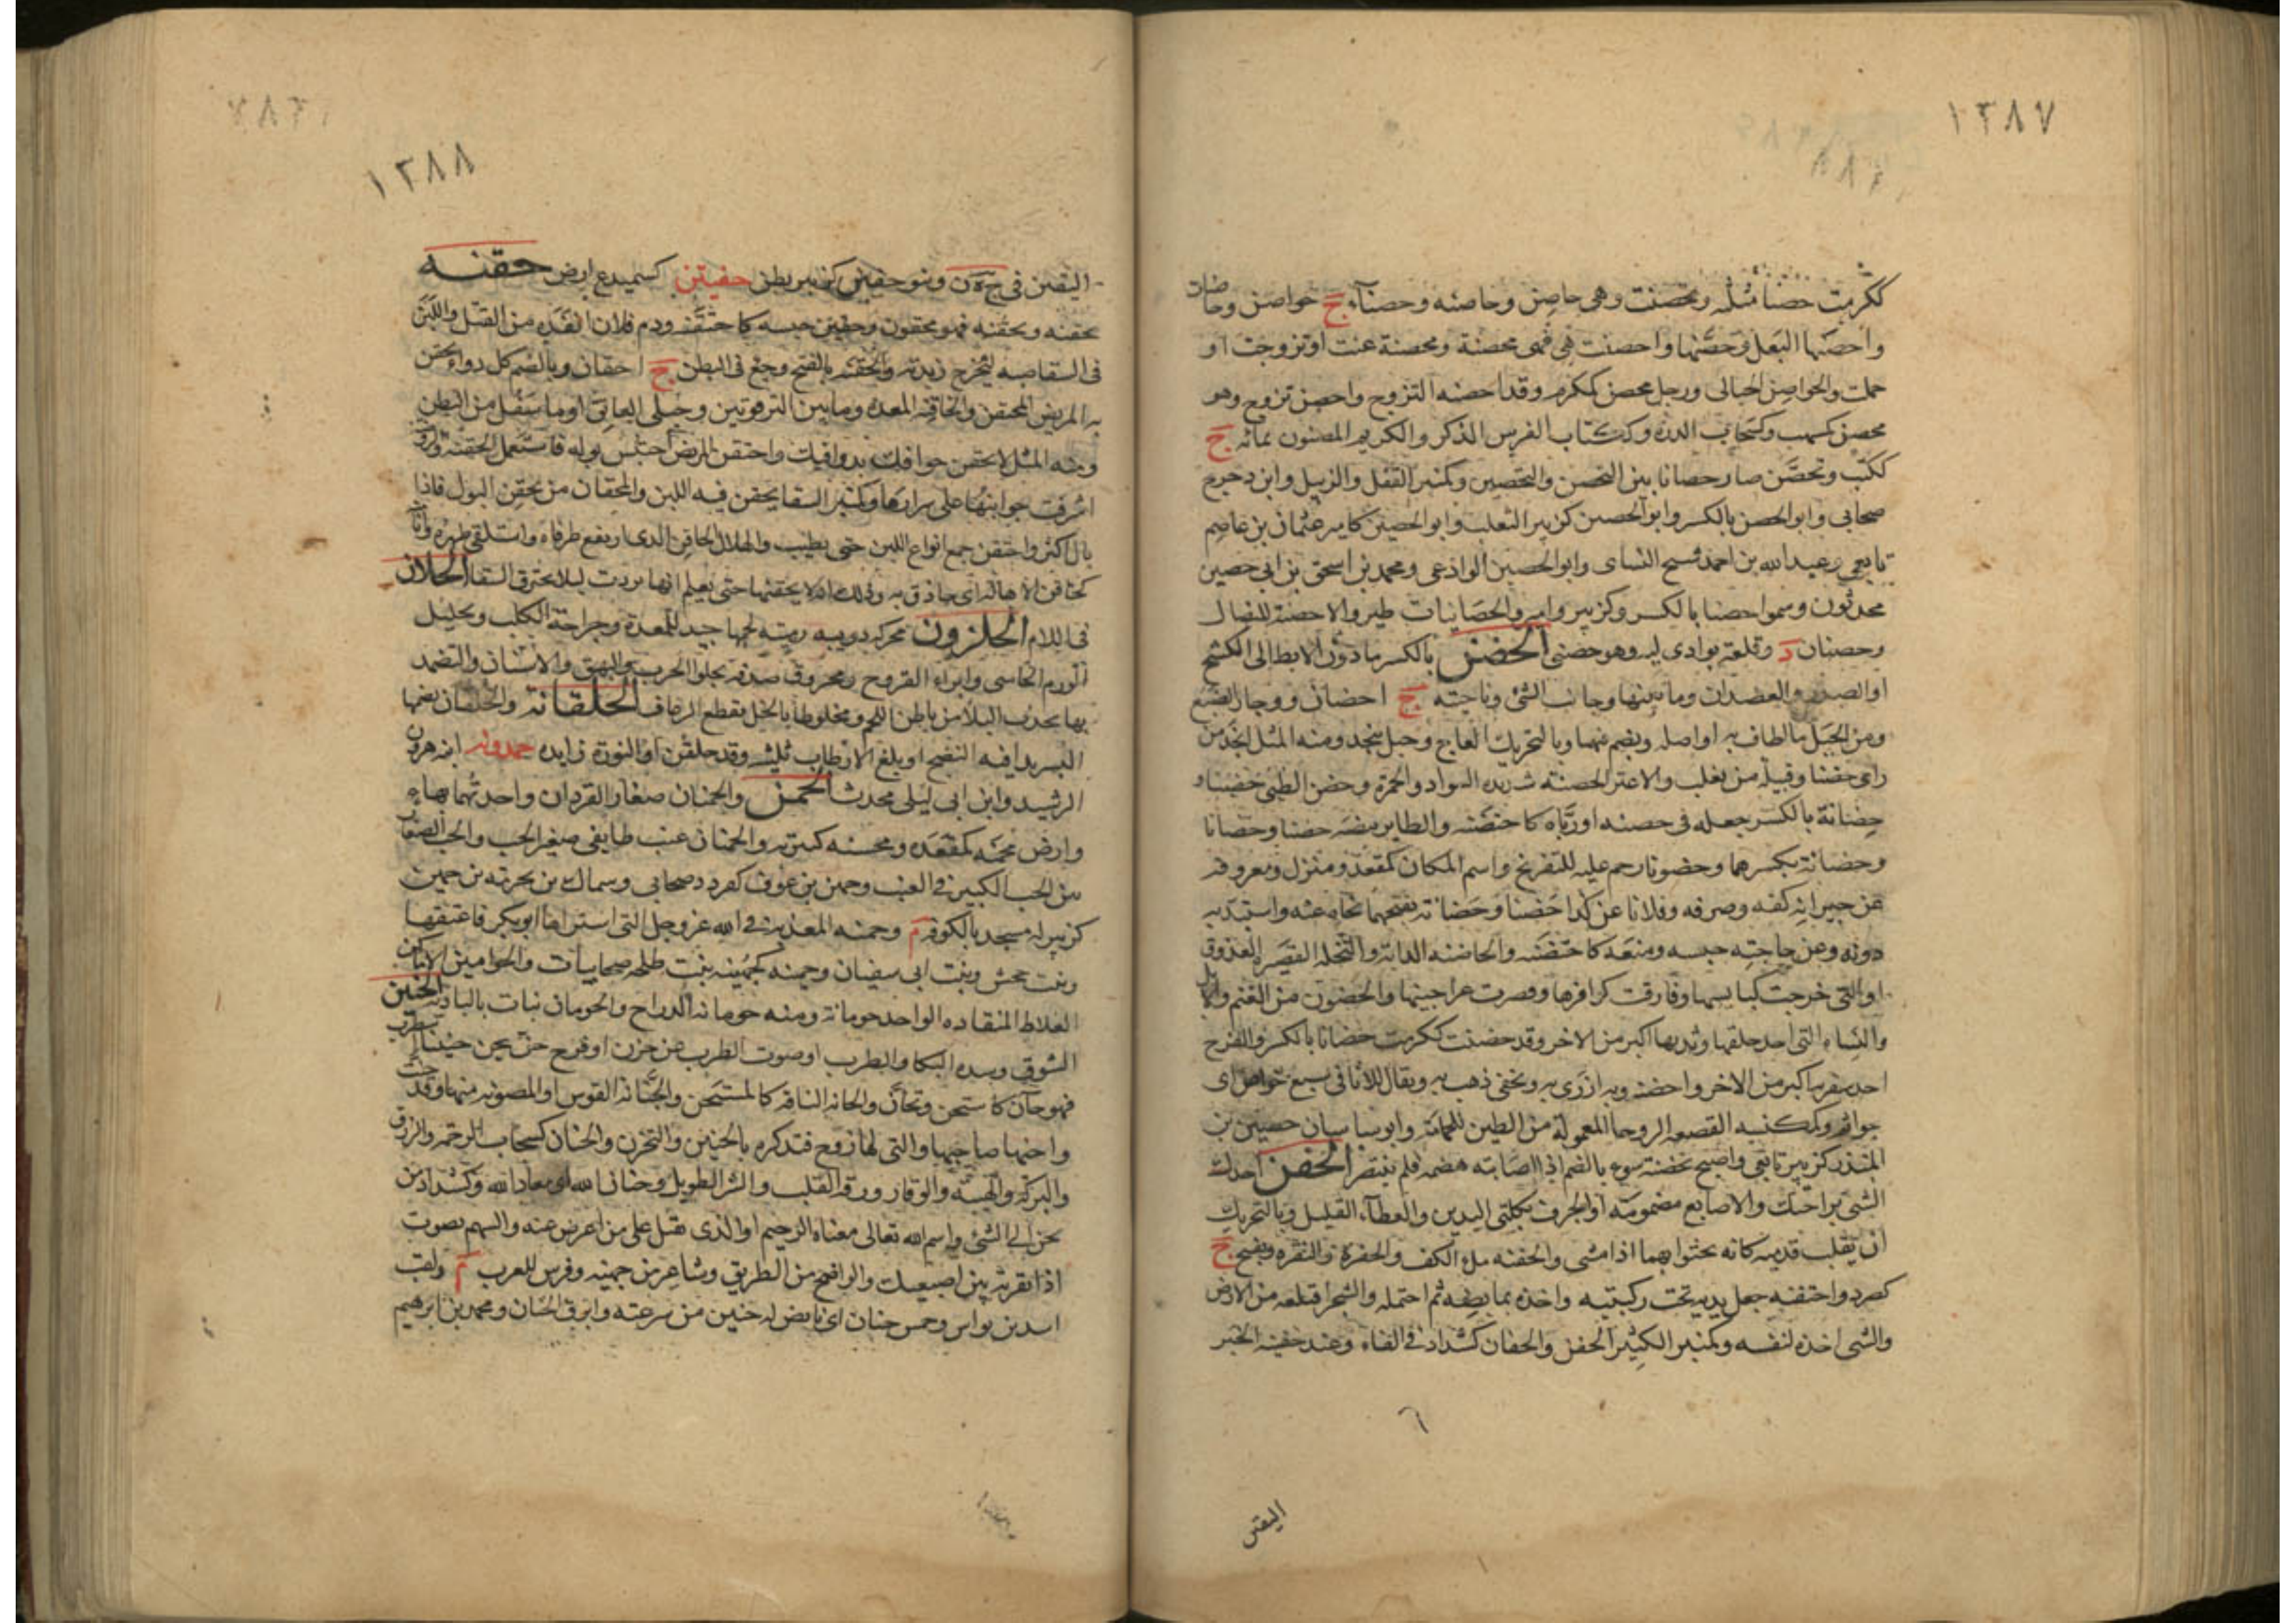 ١٢٨٧
ككرمت حصنا مثلثه وتحصنت وهى حاصن وحاصنه وحصناء ج حواصن وحاصنات
واحصنها البعل وحصنها واحصنت هى فهى محصنة ومحصنة عفت او تزوجت او
حملت والحواصن الحبالى ورجل محصن كمكرم وقد احصنه التزوج واحصن تزوج وهو
محصن كمسهب وكسحاب الدره وككتاب الفرس الذكر والكريم المضنون بمائه ج
ككتب وتحصن صار حصانا بين التحصن والتحصين وكمنبر القفل والزبيل وابن دحرج
صحابى وابو الحصن بالكسر وابو الحصين كزبير الثعلب وابو الحصين كامير عثمان بن عاصم
تابعى وعبد الله بن احمد شيخ النساى وابو الحصين الوادعى ومحمد بن اسحق بن ابى حصين
محدثون وسموا حصنا بالكسر وكزبير وامير والحصانيات طير والاحصنة للنصال
وحصنان د وقلعة بوادى ليه وهو حصنى الحضن بالكسر ما دون الابط الى الكشح
او الصدر والعضدان وما بينهما وجانب الشئ وناحيته ج احضان ووجار الضبع
ومن الجبل ما اطاف به او اصله ويضم فيهما وبالتحريك العاج وجبل بنجد ومنه المثل انجد من
راى حضنا وقبيلة من تغلب والاعنز الحضنيه شديده السواد والحمرة وحضن الصبى حضنا و
حضانة بالكسر جعله فى حضنه او رباه كاحتضنه والطاير بيضه حضنا وحضانا
وحضانة بكسرهما وحضونا رحم عليه للتفريخ واسم المكان كمقعد ومنزل ومعروفه
عن جيرانه كفه وصرفه وفلانا عن كذا حضنا وحضانة بفتحهما نحاه عنه واستبد به
دونه وعن حاجته حبسه ومنعه كاحتضنه والحاضنه الداية والنخلة القصيرة العذوق
او التى خرجت كبايسها وفارقت كوافرها وقصرت عراجينها والحضون من الغنم والابل
والنساء التى احد خلفيها وثدييها اكبر من الاخر وقد حضنت ككرمت حضانا بالكسر والفرج
احد شفريه اكبر من الاخر واحضنه وبه ازرى به وبحقى ذهب به ويقال للاثافى سفع حواضن اى
جواثم وكمكنسه القصعه الروحا المعمولة من الطين للحمامة وابو ساسان حضين بن
المنذر كزبير تابعى واصبح بحضنة سوء بالضم اذا اصابته هضمه فلم ينتصر الحفن اخذك
الشئ براحتك والاصابع مضمومة او الجرف بكلتى اليدين والعطاء القليل وبالتحريك
ان يقلب قدميه كانه يحثوا بهما اذا مشى والحفنه ملء الكف والحفرة والنقرة ويفتح ج
كصرد واحتفنه جعل يديه تحت ركبتيه واخذه بمابضه ثم احتمله والشجر اقتلعه من الارض
والشى اخذه لنفسه وكمنبر الكثير الحفن والحفان كشداد فى الفاء وعند حفينه الخبر
اليقين
١٢٨٨
اليقين فى ج ه ن وبنو حفين كزبير بطن حفيتن كسميدع ارض حقنه
يحقنه ويحقنه فهو محقون وحقين حبسه كاحتقنه ودم فلان انقذه من القتل واللبن
فى السقا صبه ليخرج زبدته والحقنه بالفتح وجع فى البطن ج احقان وبالضم كل دواء يحقن
به المريض المحتقن والحاقنه المعده وما بين الترقوتين وحبلى العاتق او ما سفل من البطن
ومنه المثل لالحقن حواقنك بذواقنك واحتقن المريض احتبس بوله فاستعمل الحقنة والروضة
اشرفت جوانبها على سرارها وكمنبر السقا يحقن فيه اللبن والمحقان من يحقن البول فاذا
بال اكثر واحتقن جمع انواع اللبن حتى يطيب والهلال الحاقن الذى ارتفع طرفاه واستلقى ظهره وانا
كحاقن الاهالة اى حاذق به وذلك انه لا يحقنها حتى يعلم انها بردت ليلا يحترق السقا الحلان
فى اللام الحلزون محركه دويبه رمثيه لحمها جيد للمعدة وجراحة الكلب وتحليل
الورم الجاسى وابراء القروح ومحروق صدفه يجلو الجرب والبهق والاسنان والتضمد
بها يجذب البلا من باطن اللحم ومخلوطا بالخل يقطع الرعاف الحلقانة والحلقان بضمهما
البسر بدا فيه النضج او بلغ الارطاب ثلثيه وقد حلقن او النون زايده حمدونه ابنه هرون
الرشيد وابن ابى ليلى محدث الحمن والحمنان صغار القردان واحدتهما بهاء
وارض محمنه كمقعده ومحسنه كثيرته والحمنان عنب طايفى صغير الحب والحب الصغار
بين الحب الكبير فى العنب وحمنن بن عوف كفردد صحابى وسماك بن محرمه بن حمين
كزبير له مسجد بالكوفة م وحمنه المعذبة فى الله عز وجل التى اشتراها ابو بكر فاعتقها
وبنت جحش وبنت ابى سفيان وحمينه كجهينه بنت طلحه صحابيات والحوامين الاماكن
الغلاظ المنقاده الواحد حومانة ومنه حومانة الدراج والحومان نبات بالبادية الحنين
الشوق وشده البكا والطرب او صوت الطرب عن حزن او فرح حن يحن حنينا استطرب
فهو حان كاستحن وتحان والحانة الناقة كالمستحن والحنانة القوس او المصوتة منها وقد حنت
واحنها صاحبها والتى لها زوج فتذكره بالحنين والتحزن والحنان كسحاب الرحمة والرزق
والبركة والهيبة والوقار ورقه القلب والشر الطويل وحنان الله اى معاذ الله وكشداد من
يحن الى الشئ واسم الله تعالى معناه الرحيم او الذى يقبل على من اعرض عنه والسهم يصوت
اذا نقرته بين اصبعيك والواضح من الطريق وشاعر من جهينه وفرس للعرب م ولقب
اسد بن نواس وخمس حنان اى بايض له حنين من سرعته وابرق الحنان ومحمد بن ابرهيم